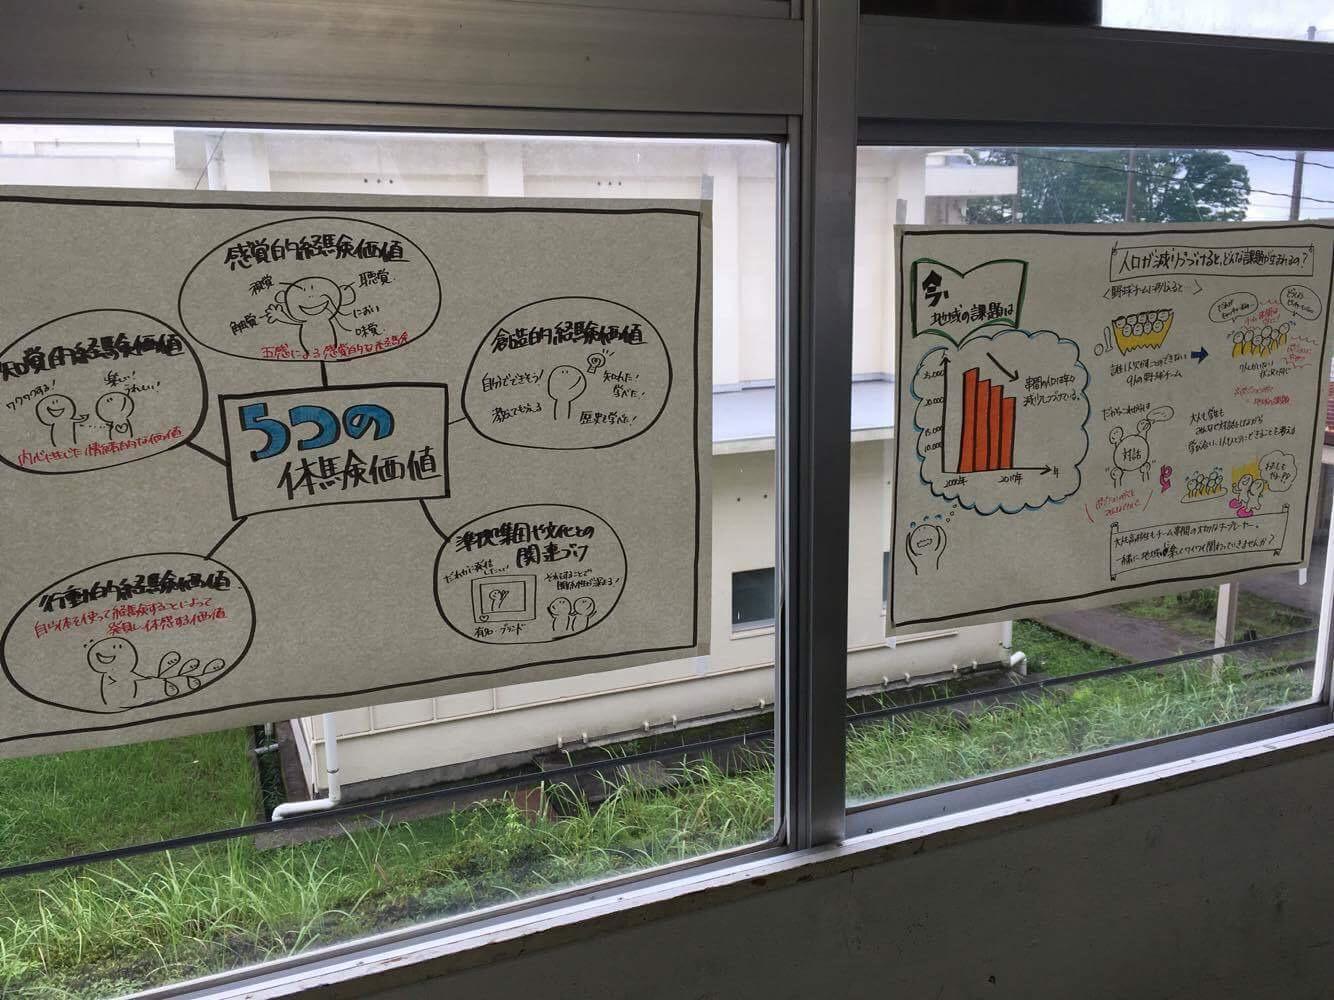 感覚的経験価値
視覚
聴覚
触覚
におい
味覚
五感による感覚的な経験
知覚的経験価値
ワクワクする!
楽しい!
うれしい!
内心に生じた情緒的な価値
創造的経験価値
自分でできそう!
知れた!
学べた!
教えてもらえる
歴史を学べた!
5つの
体験価値
行動的経験価値
自ら体を使って経験することによって
発見し体感する価値
準拠集団や文化との
関連づけ
だれかに発信したい!
それをすることで
関係性が深まる!
有名・ブランド
今、
地域の課題は
25,000
20,000
15,000
10,000
年間の人口は年々
減少しつづけている。
2000年
2017年
年
人口が減りつづけると、どんな課題が生まれるの?
<野球チームに例えると…>
誰1人欠かすことのできない
9人の野球チーム
9人がいない
だからこれからは
対話
大人も学生も
みんなで対話をしながら
学び合い、1人ひとりにできることを考える
大人も高校生もチーム
の大切なチームプレイヤー。
一緒に、地域を楽しくワイワイ関わっていきませんか?